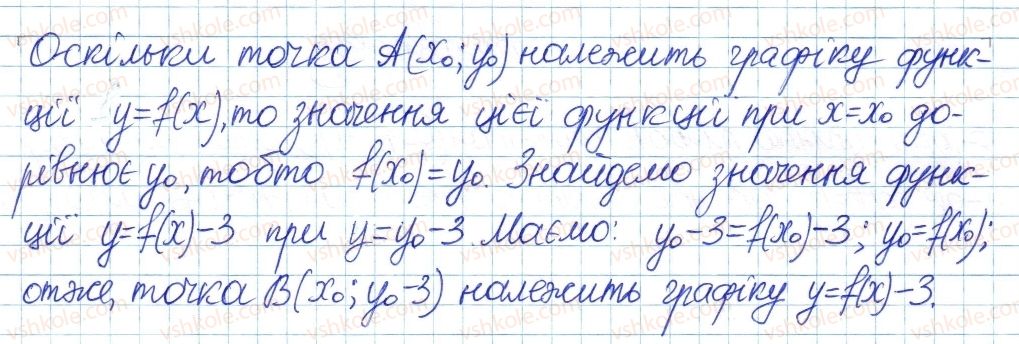 Оскільки точка A(x₀; y₀) належить графіку функ-
ції y=f(x), то значення цієї функції при x=x₀ до-
рівнює y₀, тобто f(x₀)=y₀. Знайдемо значення функ-
ції y=f(x)-3 при y=y₀-3. Маємо: y₀-3=f(x₀)-3; y₀=f(x₀);
отже, точка B(x₀; y₀-3) належить графіку y=f(x)-3.